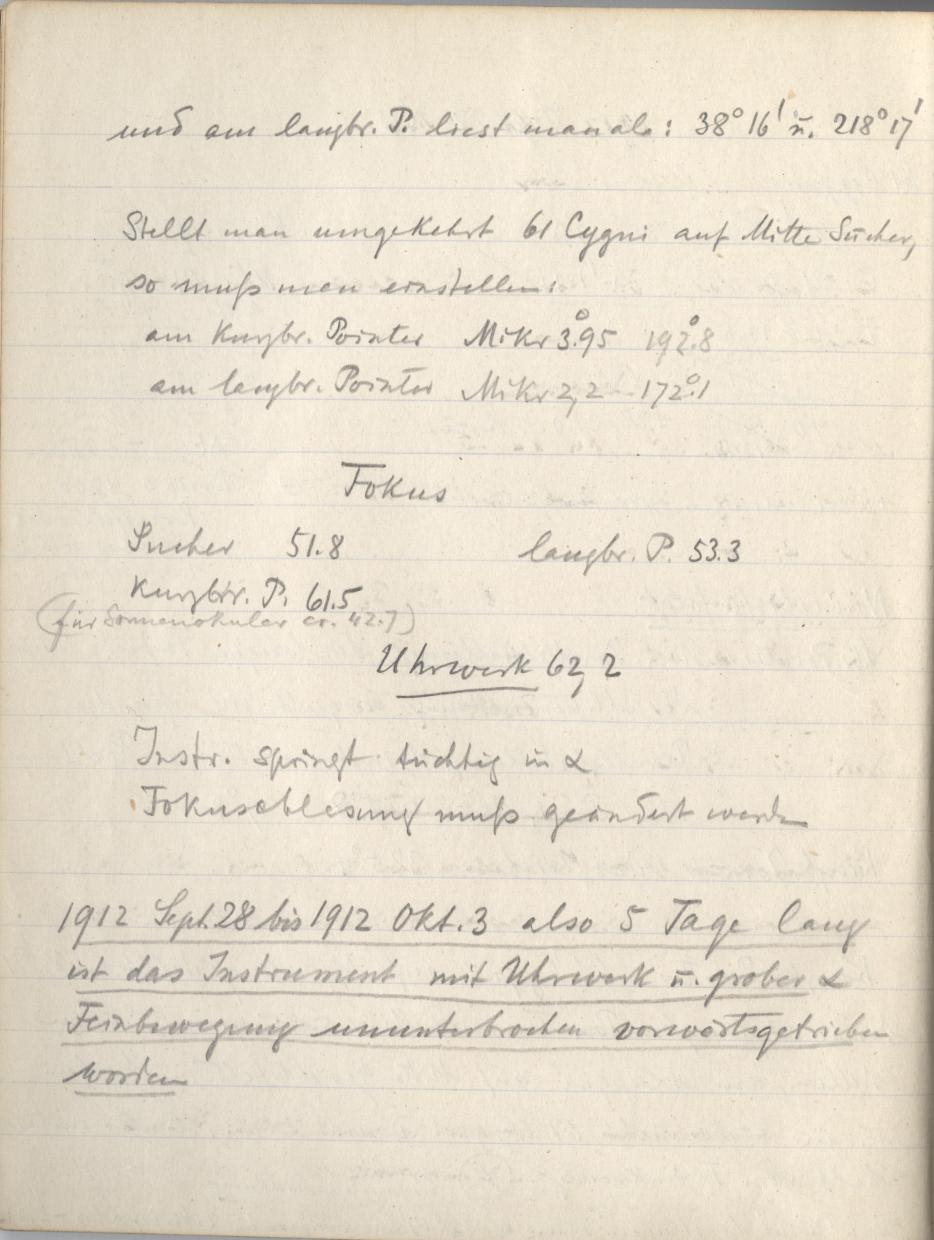 und am langbr. P. liest man ab: 38° 16' u. 218° 17'
Stellt man umgekehrt 61 Cygni auf Mitte Sucher,
so muß man einstellen:
am Kurzbr. Pointer Mikr 3.95 192°.8
am langbr. Pointer Mikr 2,2 172°.1
Fokus
Sucher 51.8 langbr. P. 53.3
Kurzbr. P. 61.5
(für Sonnenokular ca. 42.7)
Uhrwerk 62,2
Instr. springt tüchtig in α
Fokusablesung muß geändert werden
1912 Sept. 28 bis 1912 Okt. 3 also 5 Tage lang
ist das Instrument mit Uhrwerk u. grober α
Feinbewegung ununterbrochen vorwärtsgetrieben
worden